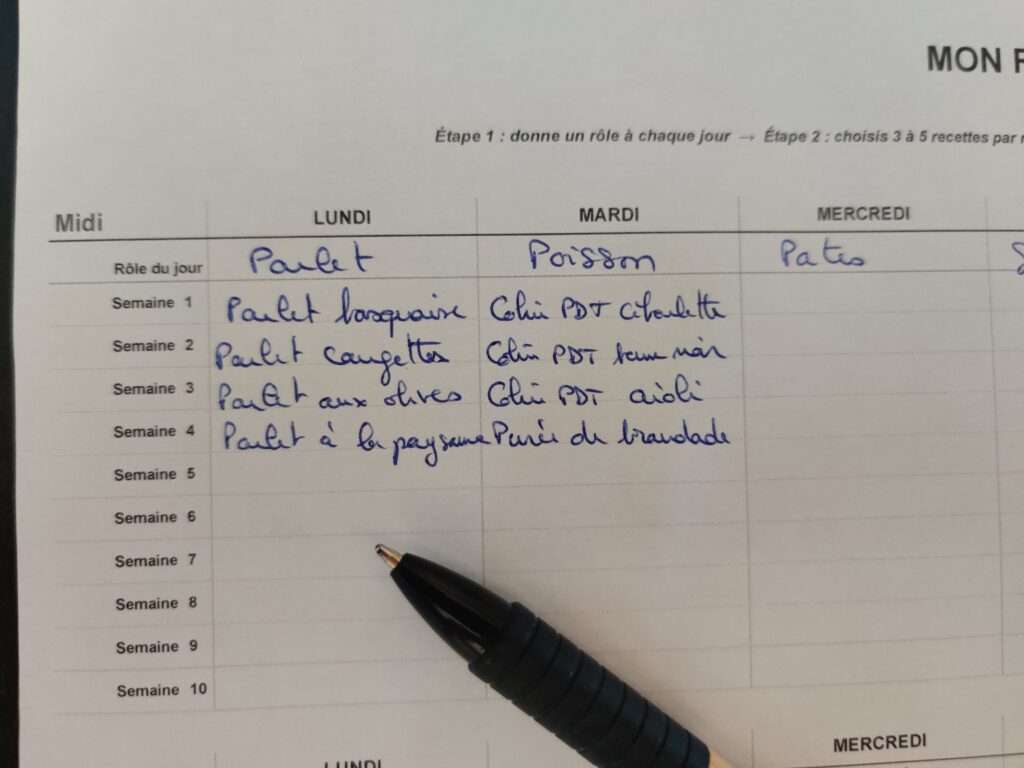 MON
Étape 1 : donne un rôle à chaque jour → Étape 2 : choisis 3 à 5 recettes par
Midi LUNDI MARDI MERCREDI
Rôle du jour Poulet Poisson Pates
Semaine 1 Poulet basquaise Colin PDT ciboulette
Semaine 2 Poulet courgettes Colin PDT
Semaine 3 Poulet aux olives Colin PDT aïoli
Semaine 4 Poulet à la paysanne Purée de brandade
Semaine 5
Semaine 6
Semaine 7
Semaine 8
Semaine 9
Semaine 10
LUNDI MERCREDI